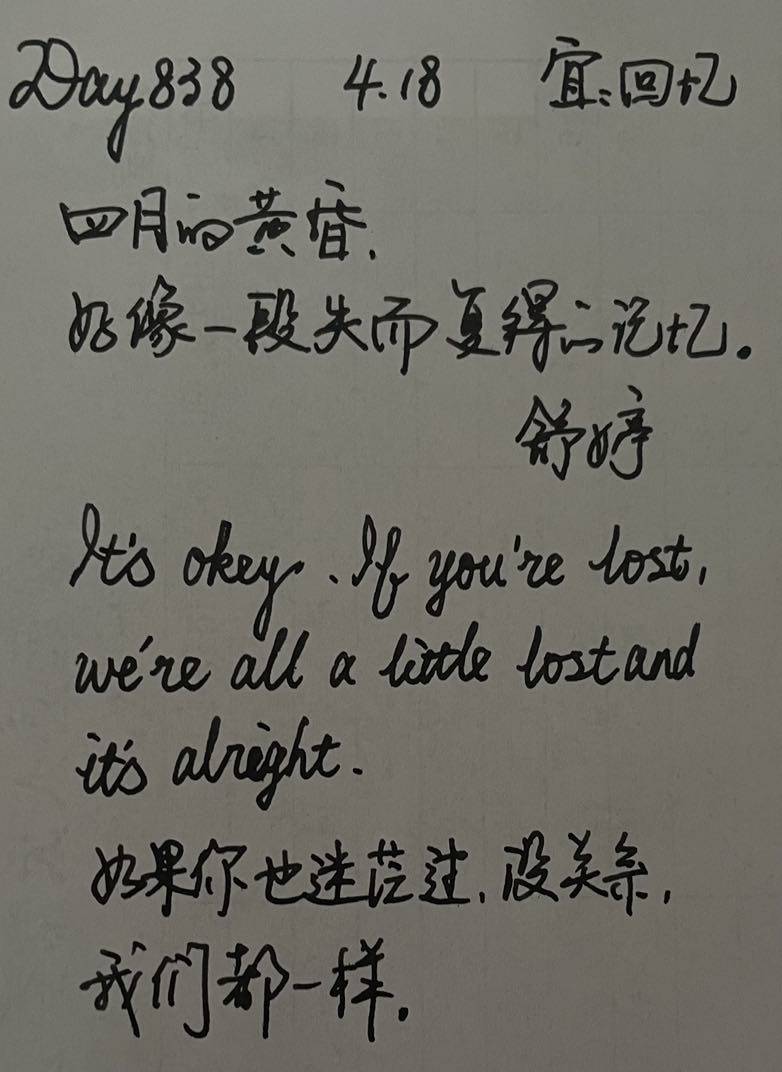 Day 838 4.18 宜:回忆
四月的黄昏,
好像一段失而复得的记忆。
舒婷
It's okey. If you're lost,
we're all a little lost and
it's alright.
如果你也迷茫过,没关系,
我们都一样。